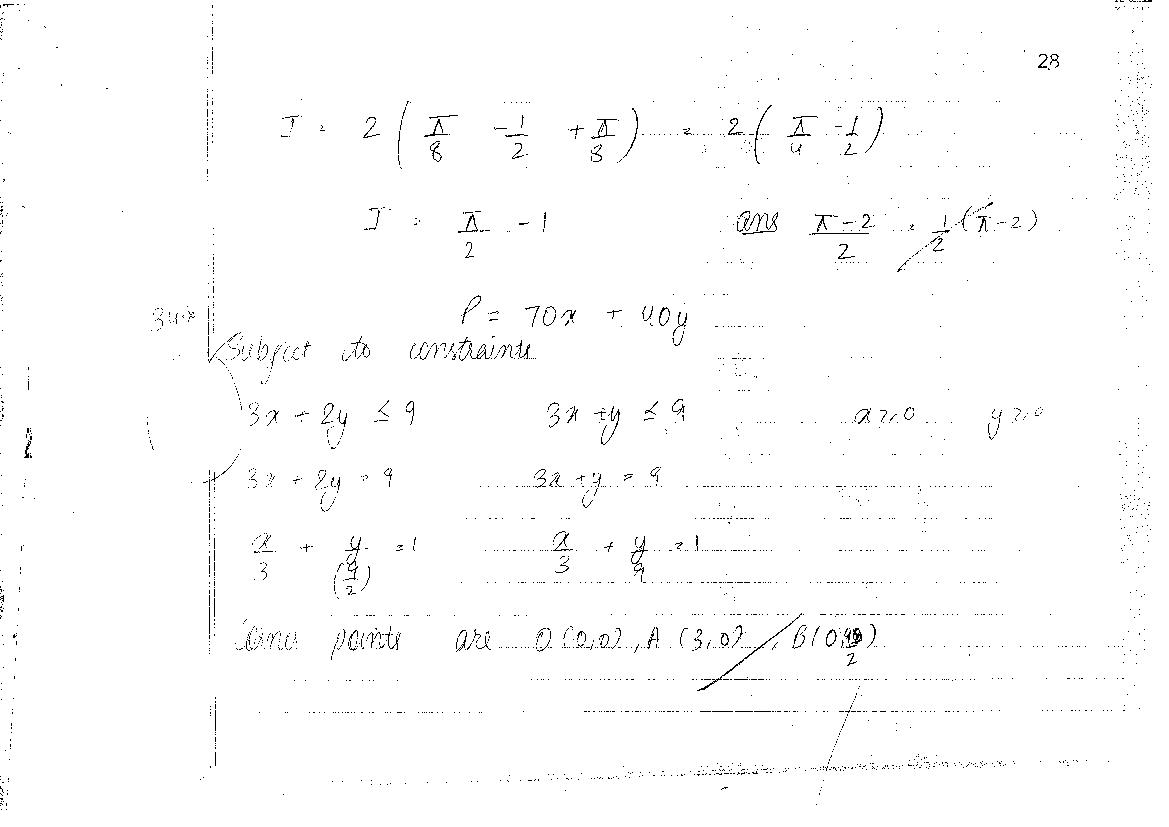 28
I = 2 ( π/8 - 1/2 + π/8 ) = 2 ( π/4 - 1/2 )
I = π/2 - 1 ans π-2/2 = 1/2 (π-2)
P = 70x + 40y
Subject to constraints
3x + 2y ≤ 9 3x + y ≤ 9 x ≥ 0 y ≥ 0
3x + 2y = 9 3x + y = 9
x/3 + y/(9/2) = 1 x/3 + y/9 = 1
Corner points are O (0,0), A (3,0), B (0, 9/2)